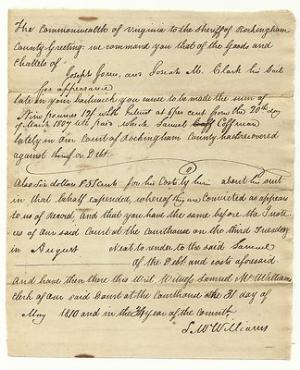 The Commonwealth of Virginia to the Sheriff of Rockingham
County Greeting we command you that of the Goods and
Chattels of
Joseph Jones, and Josiah M. Clark his bail
for appearance
late in your bailiwick you cause to be made the sum of
Nine pounds 17/ with Interest at 6 per cent from the 20th day
of March 1807 till paid which Samuel Coffman
lately in our Court of Rockingham County hath recovered
against them for Debt
Also Six dollars 75 Cents for his Costs by him about his suit
in that behalf expended, whereof they are Convicted as appears
to us of record And that you have the same before the Justices
of our said Court at the Courthouse on the third Tuesday
in August Next to render to the said Samuel
of the Debt and costs aforesaid
And have then there this Writ Witness Samuel McWilliams
Clerk of our said Court at the Courthouse the 31 day of
May 1810 and in the 34 year of the Commth
S. McWilliams